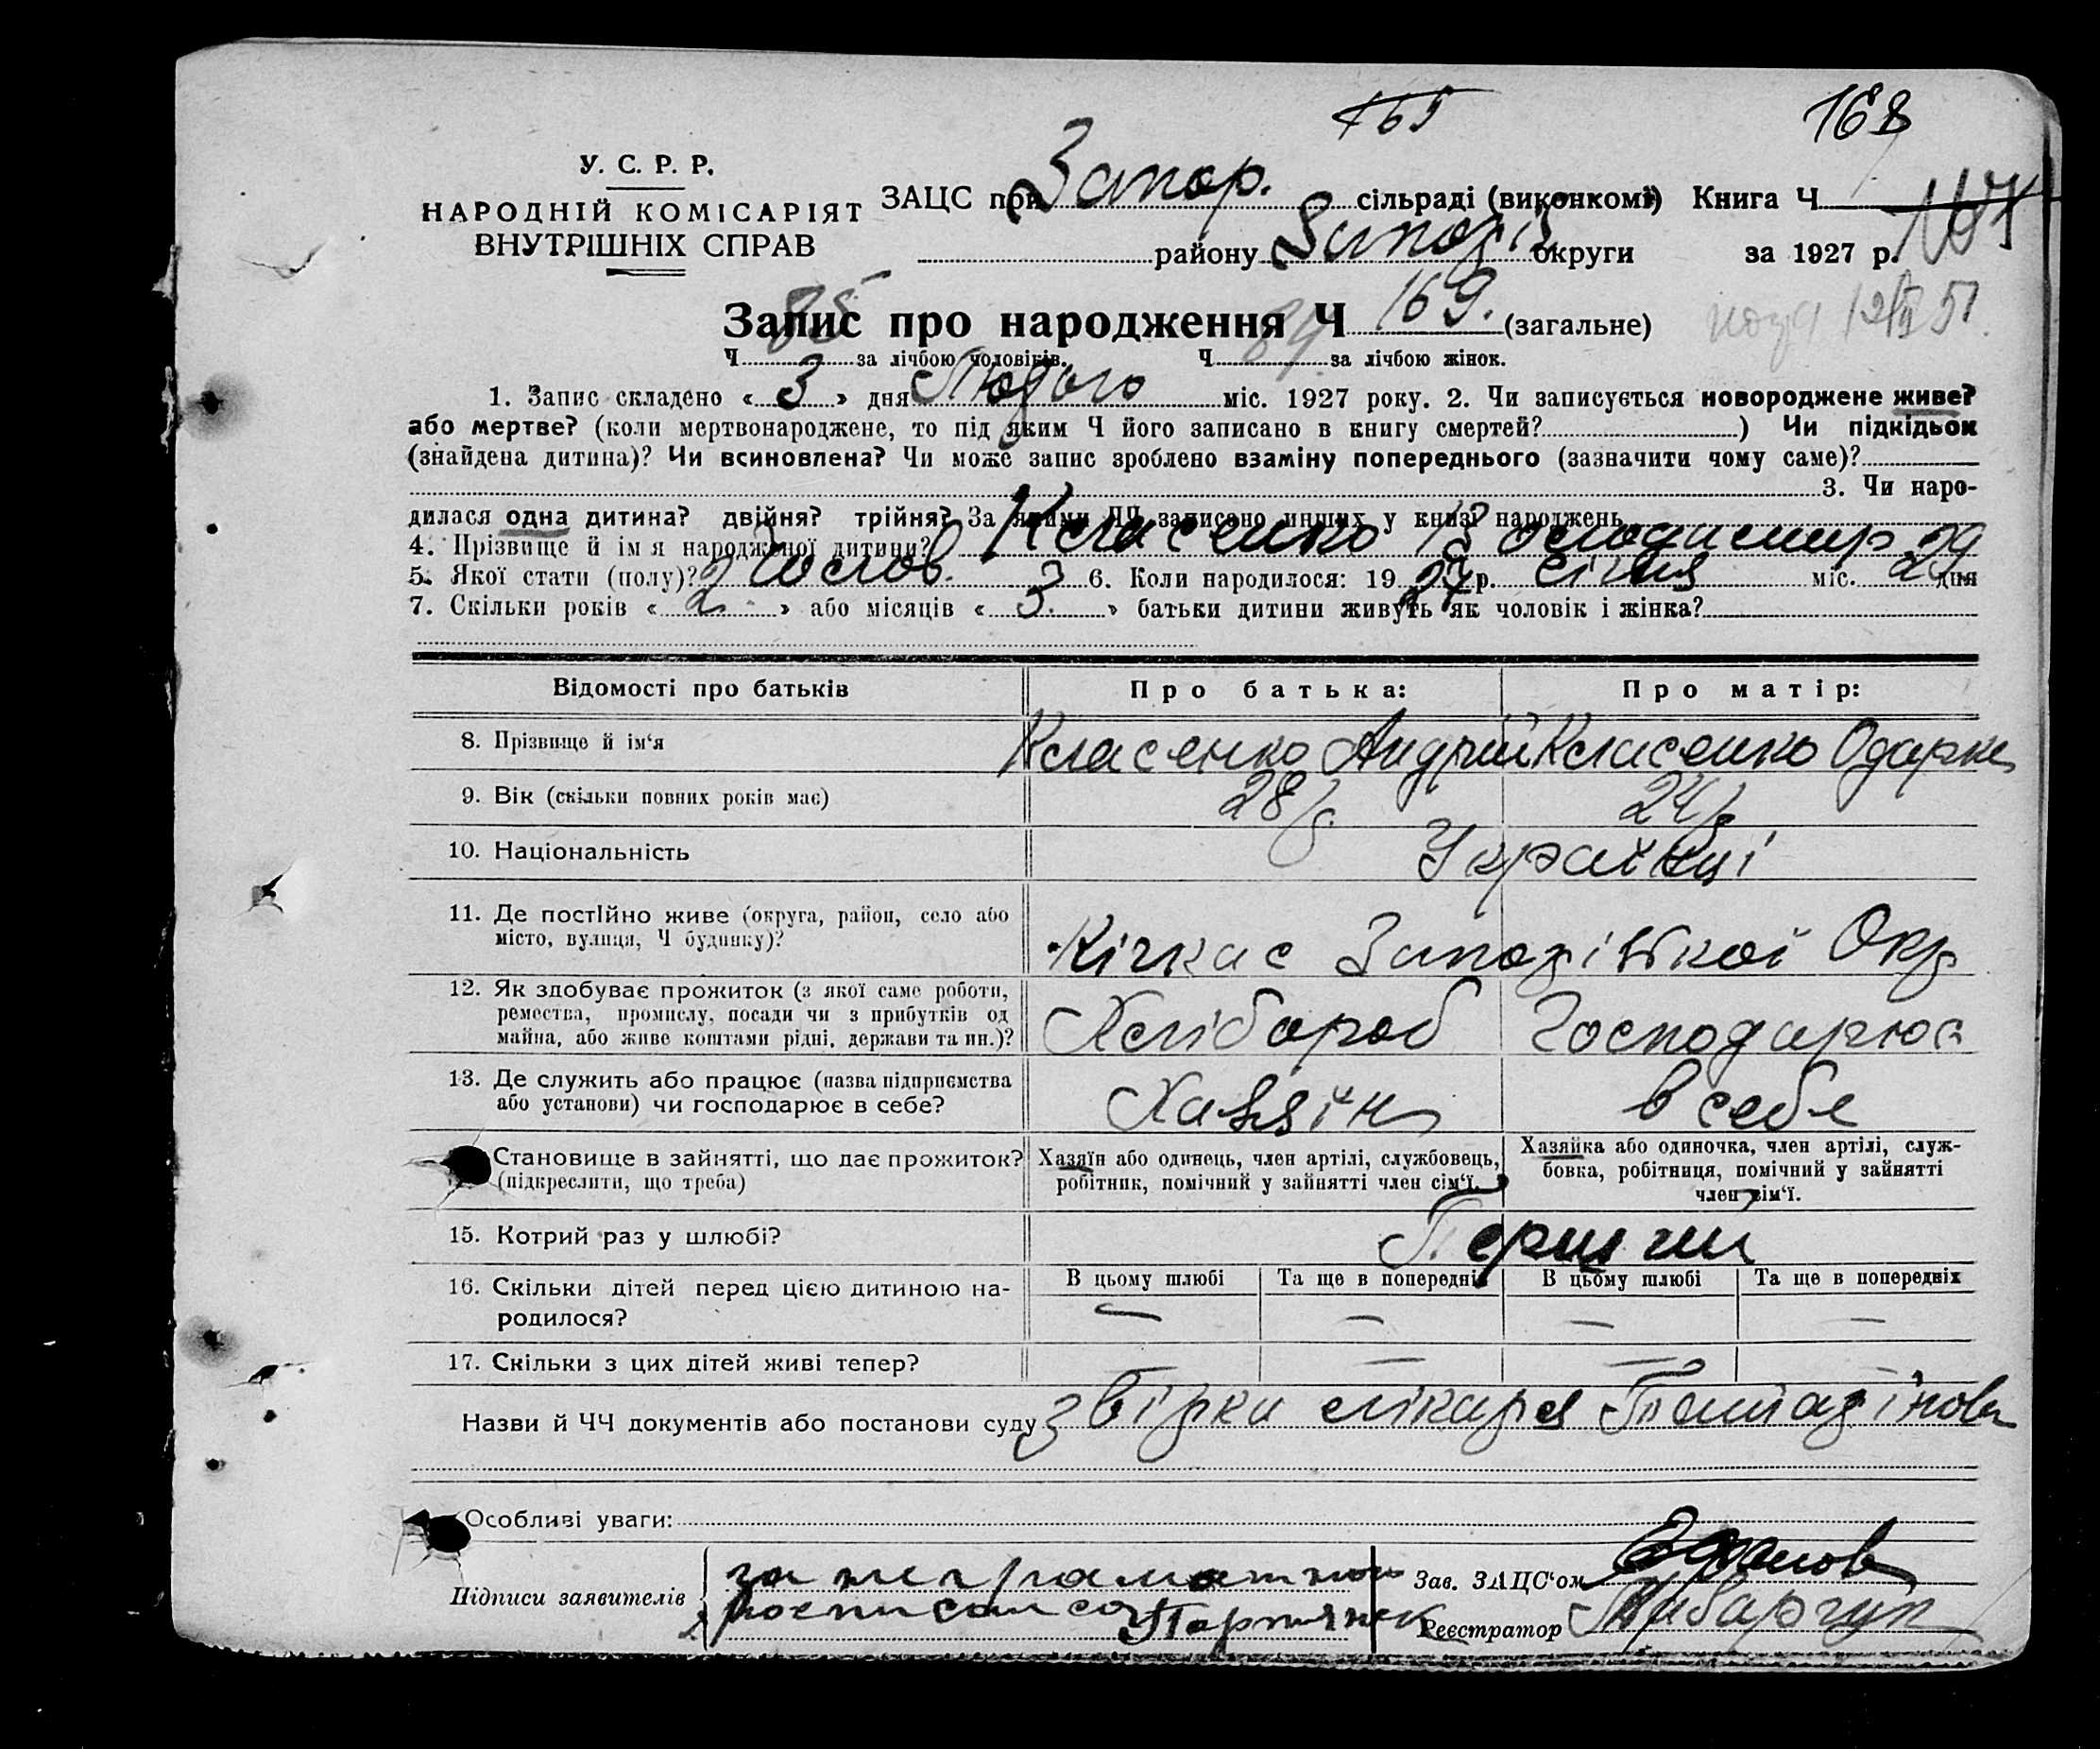 165
168
У. С. Р. Р.
НАРОДНІЙ КОМІСАРІЯТ
ВНУТРІШНІХ СПРАВ
ЗАЦС при Запор. сільраді (виконкомі) Книга Ч
району Запоріз округи за 1927 р.
Запис про народження Ч 169. (загальне)
12/II 51
Ч 85 за лічбою чоловіків. Ч 84 за лічбою жінок.
1. Запис складено « 3 » дня Лютого міс. 1927 року. 2. Чи записується новороджене живе?
або мертве? (коли мертвонароджене, то під яким Ч його записано в книгу смертей? ) Чи підкідьок
(знайдена дитина)? Чи всиновлена? Чи може запис зроблено взаміну попереднього (зазначити чому саме)?
3. Чи наро-
дилася одна дитина? двійня? трійня? За якими ЧЧ записано инших у книзі народжень
4. Прізвище й ім'я народженої дитини? Класенко Володимир
5. Якої стати (полу)? Чолов. 6. Коли народилося: 19 27 р. січня міс. 29 дня
7. Скільки років « 2 » або місяців « 3 » батьки дитини живуть як чоловік і жінка?
Відомості про батьків Про батька: Про матір:
8. Прізвище й ім'я Класенко Андрій Класенко Одарка
9. Вік (скільки повних років має) 28 24
10. Національність Українці
11. Де постійно живе (округа, район, село або
місто, вулиця, Ч будинку)? Кічкас Запорізької Окр
12. Як здобуває прожиток (з якої саме роботи,
ремества, промислу, посади чи з прибутків од
майна, або живе коштами рідні, держави та ин.)? Хлібороб Господарює
13. Де служить або працює (назва підприємства
або установи) чи господарює в себе? Хазяїн в себе
Становище в зайнятті, що дає прожиток?
(підкреслити, що треба)
Хазяїн або одинець, член артілі, службовець,
робітник, помічний у зайнятті член сім'ї.
Хазяйка або одиночка, член артілі, служ-
бовка, робітниця, помічний у зайнятті
член сім'ї.
15. Котрий раз у шлюбі? Перший
16. Скільки дітей перед цією дитиною на-
родилося?
В цьому шлюбі Та ще в попередніх В цьому шлюбі Та ще в попередніх
— — — —
17. Скільки з цих дітей живі тепер? — — —
Назви й ЧЧ документів або постанови суду звірка лікаря
Особливі уваги:
Підписи заявителів за неграмотного
росписался
Зав. ЗАЦС'ом
Реєстратор